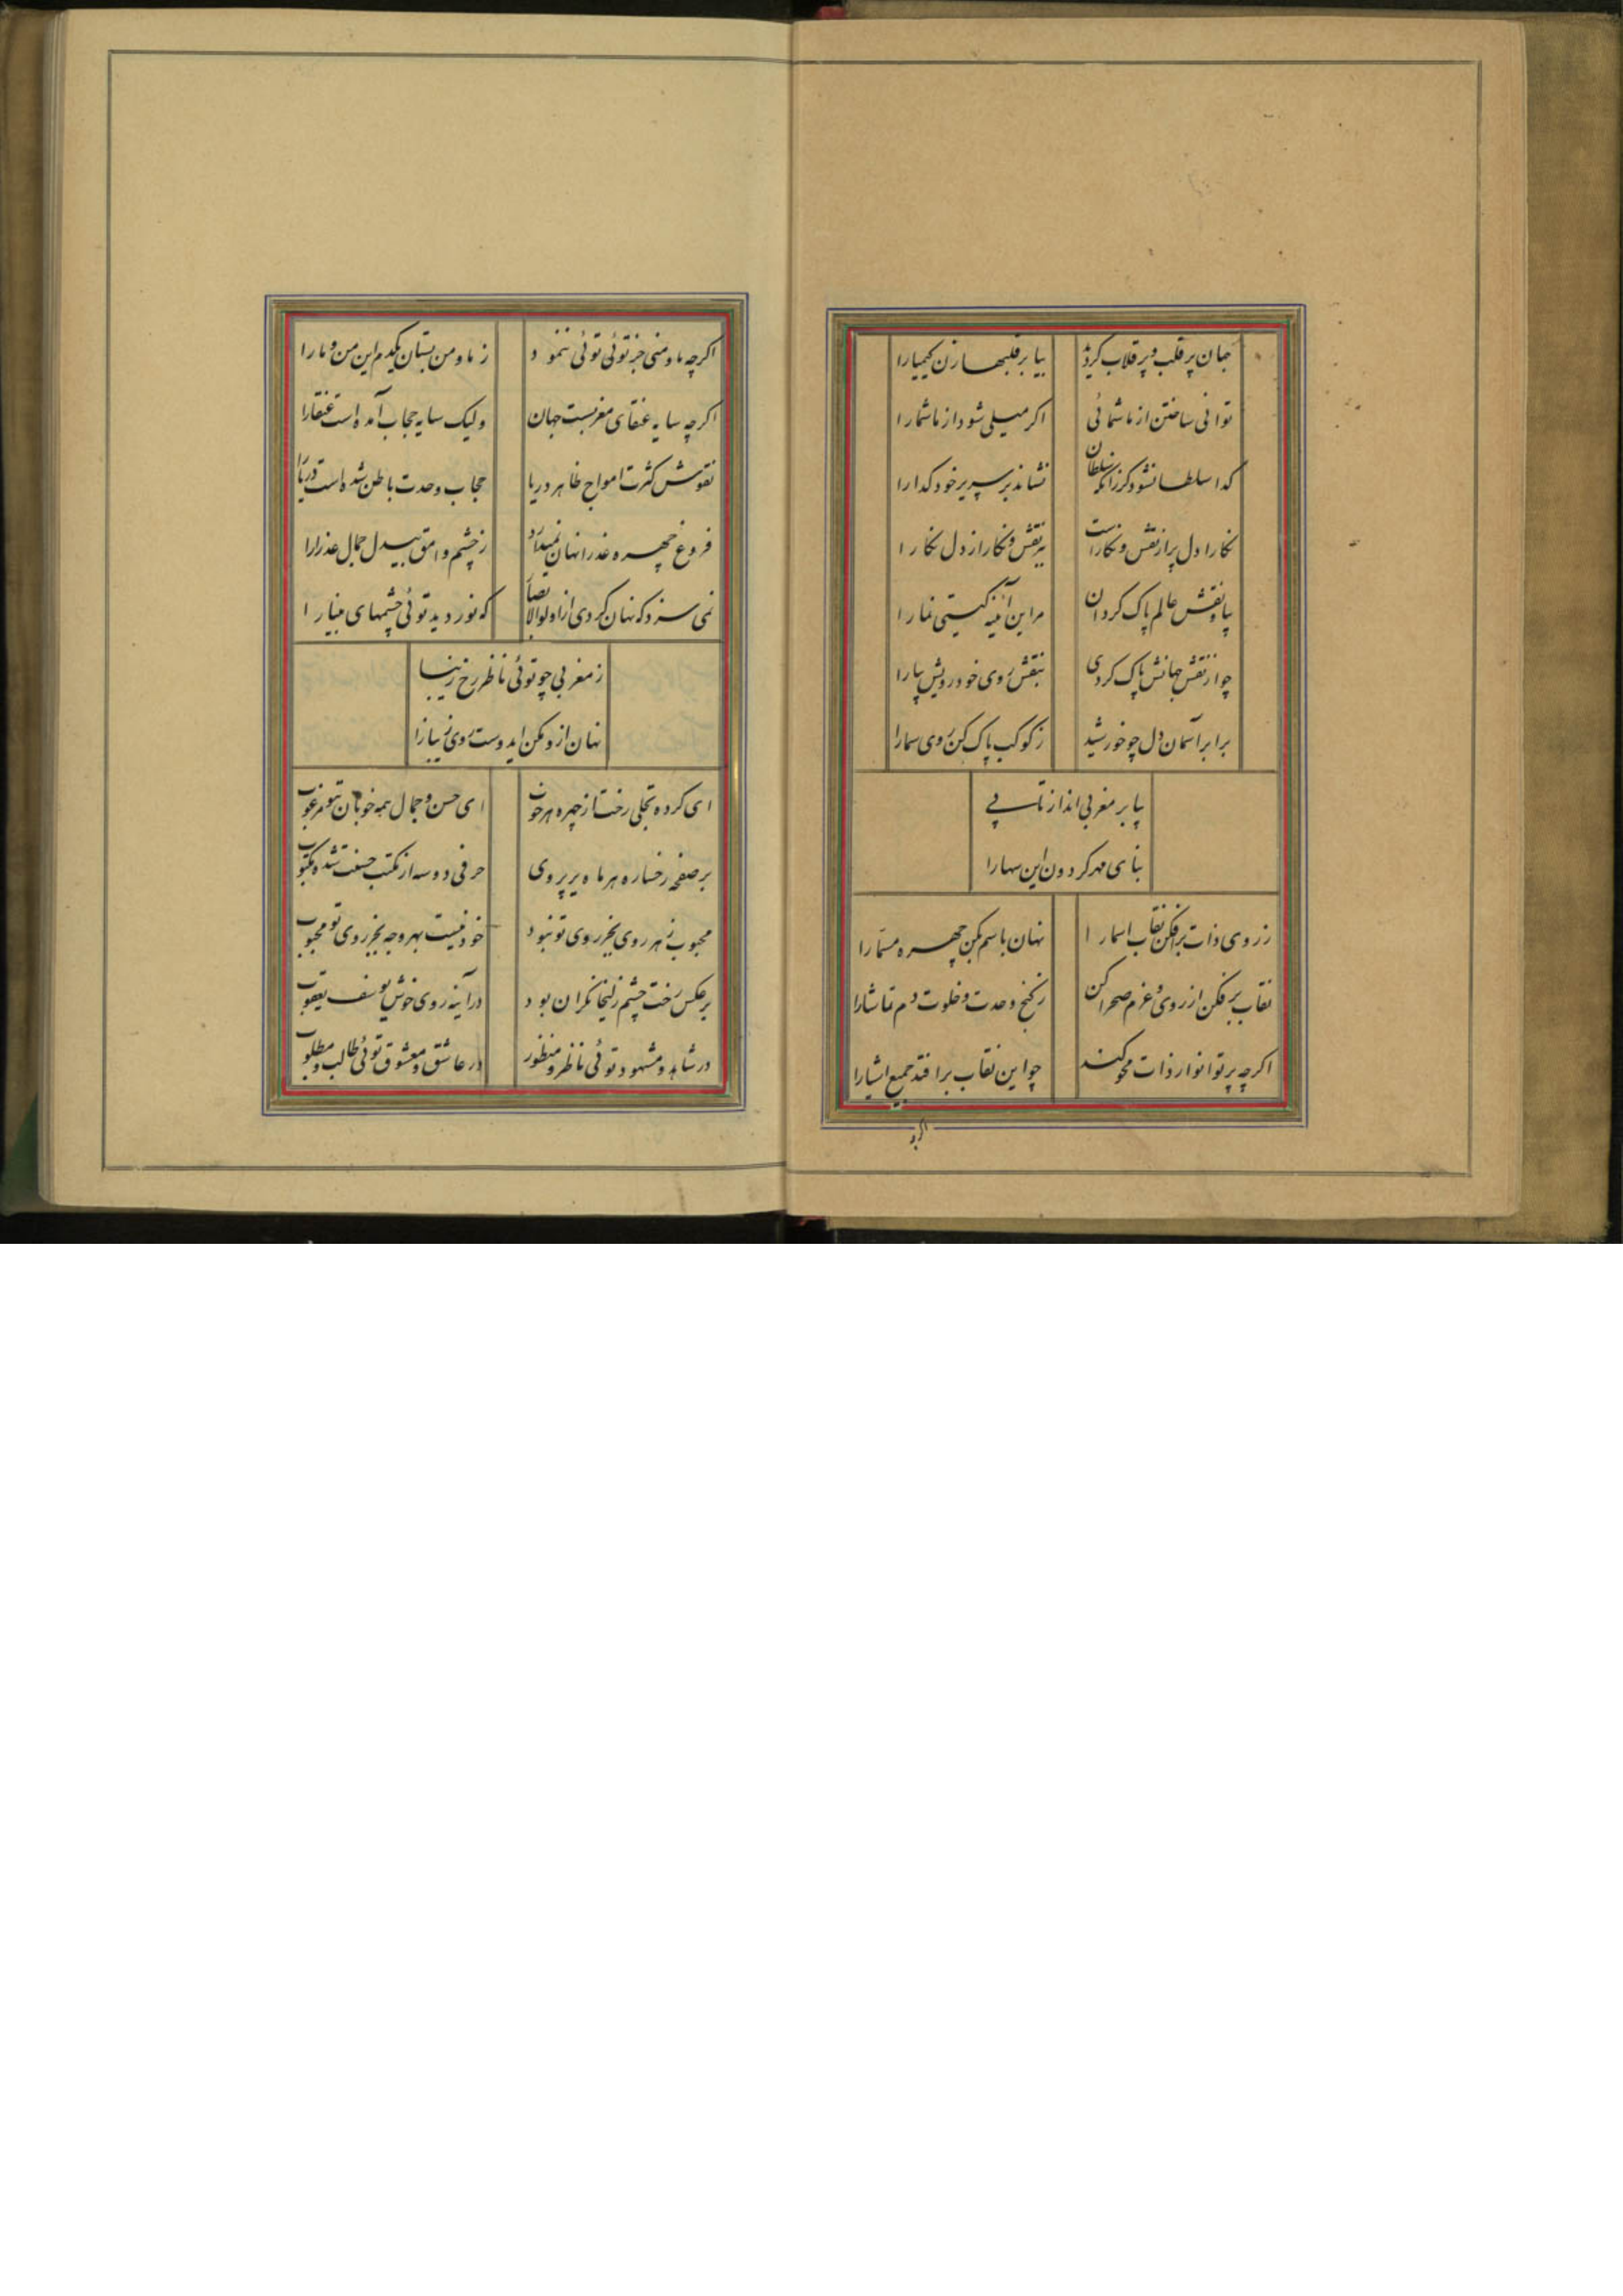 جهان پر قلب و پر قلاب گردید بیا بر قلبها زن کیمیارا
توانی ساختن از ما شمائی اگر میلی شود از ما شمارا
گدا سلطان شود گر زانکه سلطان نشاند بر سریر خود گدارا
نگارا دل پر از نقش و نگار است ببر نقش و نگار از دل نگارا
بیا و نقش عالم پاک گردان مر این آئینه گیتی نمارا
چو از نقش جهانش پاک کردی بنقش روی خود رویش بیارا
برا بر آسمان دل چو خورشید ز کوکب پاک کن روی سمارا
بیا بر مغربی انداز تابی
بنا ای مهر گردون این سهارا
ز روی ذات برافکن نقاب اسمارا نهان باسم مکن چهره مسمّارا
نقاب برفکن از روی و عزم صحرا کن ز کنج وحدت و خلوت دم تماشارا
اگرچه پرتو انوار ذات محو کند چو این نقاب برافتد جمیع اشیارا
اگرچه
اگرچه ما و منی جز توئی توئی ننمود ز ما و من بستان یکدم این من و مارا
اگرچه سایه عنقای مغربست جهان ولیک سایه حجاب آمده است عنقارا
نقوش کثرت امواج ظاهر دریا حجاب وحدت باطن شده است دریارا
فروغ چهره عذرا نهان نمیدارد ز چشم وامق بیدل جمال عذرارا
نمی سزد که نهان گردی از اولوالابصار که نور دیده توئی چشمهای بینارا
ز مغربی چو توئی ناظر رخ زیبا
نهان ازو مکن ایدوست روی زیبارا
ای کرده تجلی رخت از چهره هر خوب ای حسن و جمال همه خوبان بتو مرغوب
بر صفحه رخساره هر ماه پریروی حرفی دو سه از مکتب حسنت شده مکتوب
محبوب ز هر روی بجز روی تو نبود خود نیست بهر وجه بجز روی تو محبوب
بر عکس رخت چشم زلیخا نگران بود در آینه روی خوش یوسف یعقوب
در شاهد و مشهود توئی ناظر و منظور در عاشق و معشوق توئی طالب و مطلوب